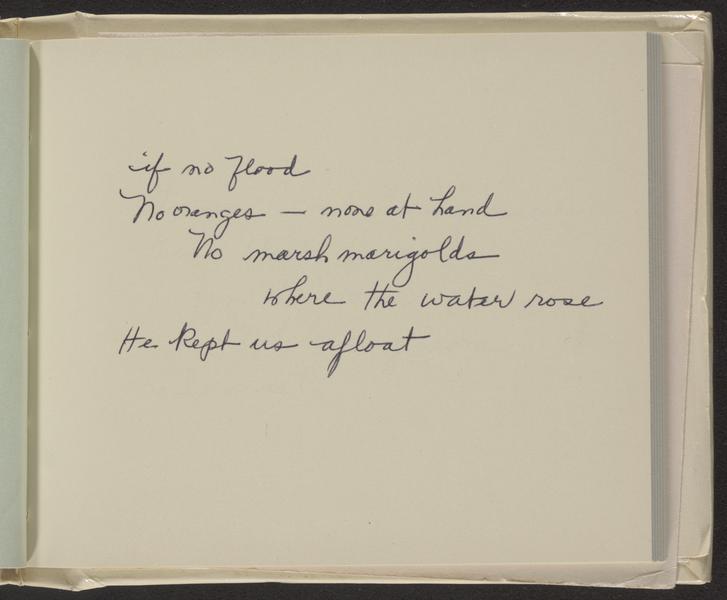 if no flood
No oranges — none at hand
No marsh marigolds
where the water rose
He kept us afloat